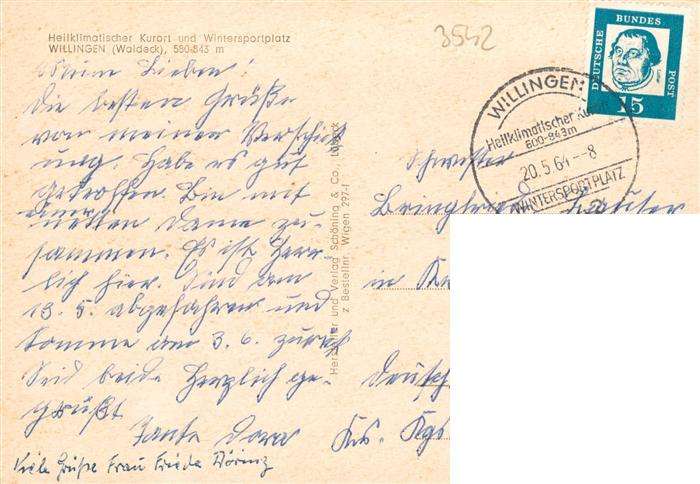 Heilklimatischer Kurort und Wintersportplatz
WILLINGEN (Waldeck), 550-843 m
3542
Meine Lieben!
die besten Grüße
von meiner Verschick
ung. Habe es gut
getroffen. Bin mit
einer
netten Dame zu-
sammen. Es ist herr-
lich hier. Sind am
13. 5. abgefahren und
komme am 3. 6. zurück
Seid beide herzlich ge-
grüßt
Tante Dora
Viele Grüße Frau Frieda
Hersteller und Verlag Schöning & Co., Lübeck
z Bestellnr. Wigen 297-1
DEUTSCHE BUNDES POST
15
WILLINGEN
Heilklimatischer Ku
600-843m
20.5.64-8
WINTERSPORTPLATZ
Schwester
in
Deutsch
Krs.